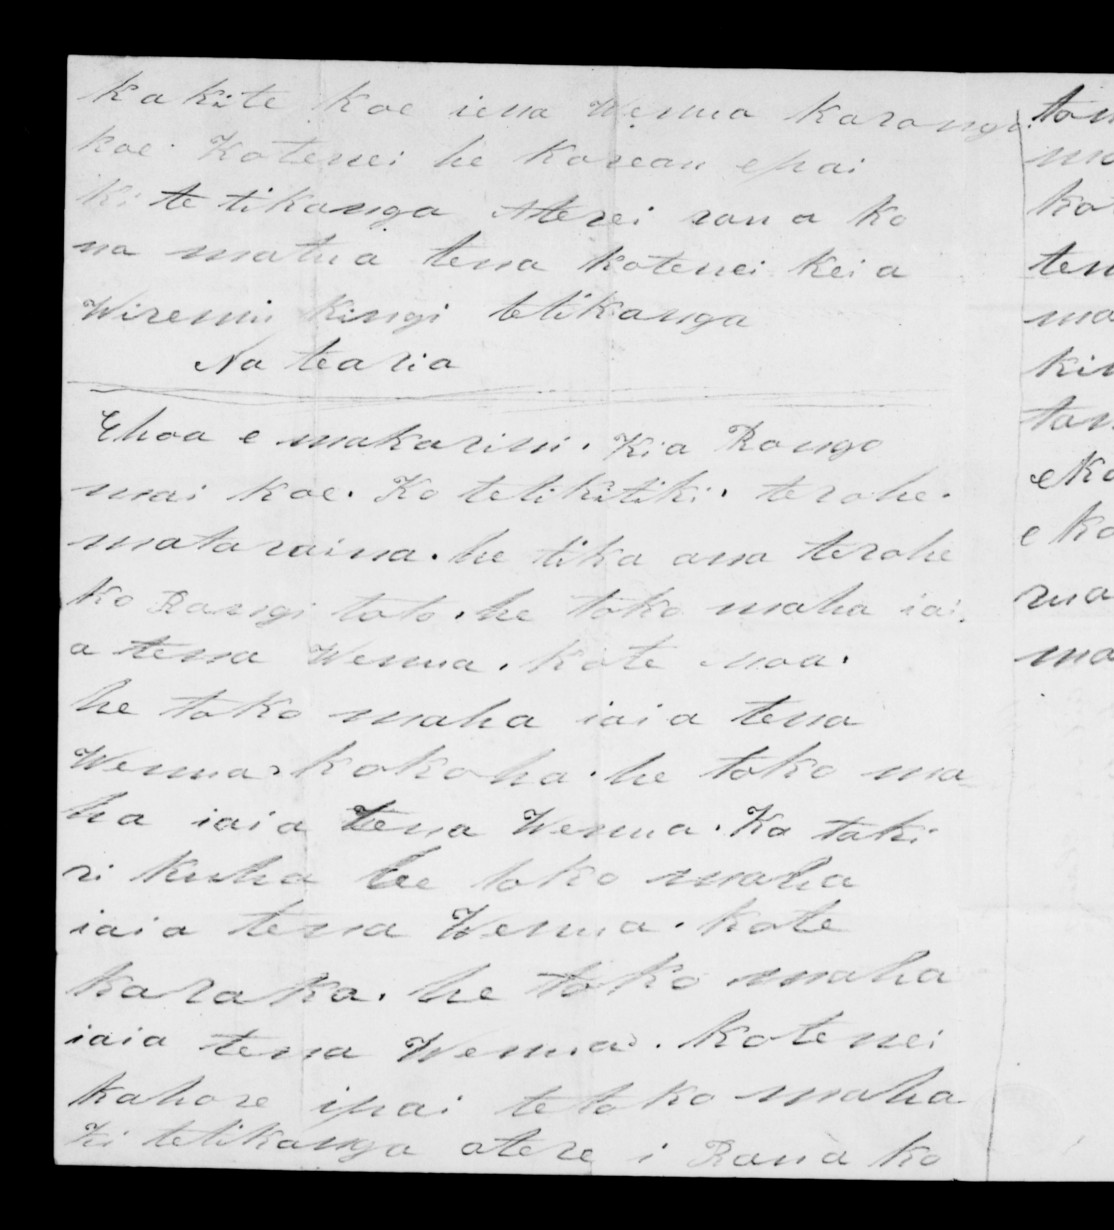 Ka kite koe iena Wenua karanga
koe. Kotenei he Korean epai
Ki te tikanga Aterei raua ko
na matua tena kotenei kei a
Wiremu Kingi tetikanga
Na tearia
Ehoa e makarini. Kia Rongo
mai koe. Ko tetikitiki. terohe.
mataraina. he tika ana terohe
Ko Rangi toto. he toko maha iai.
a tena Wenua. kote moa.
he toko maha iaia tena
Wenua. kokoha. he toko ma-
ha iaia tena Wenua. Ka taki
ri kuha he toko maha
iaia tena Wenua. kote
karaka. he toko maha
iaia tena Wenua. Kotenei
kahore ipai te toko maha
ki tetikanga atere i Raua ko
tan
ma
ko
ten
ma
kin
tan
eko
e ko
rua
ma